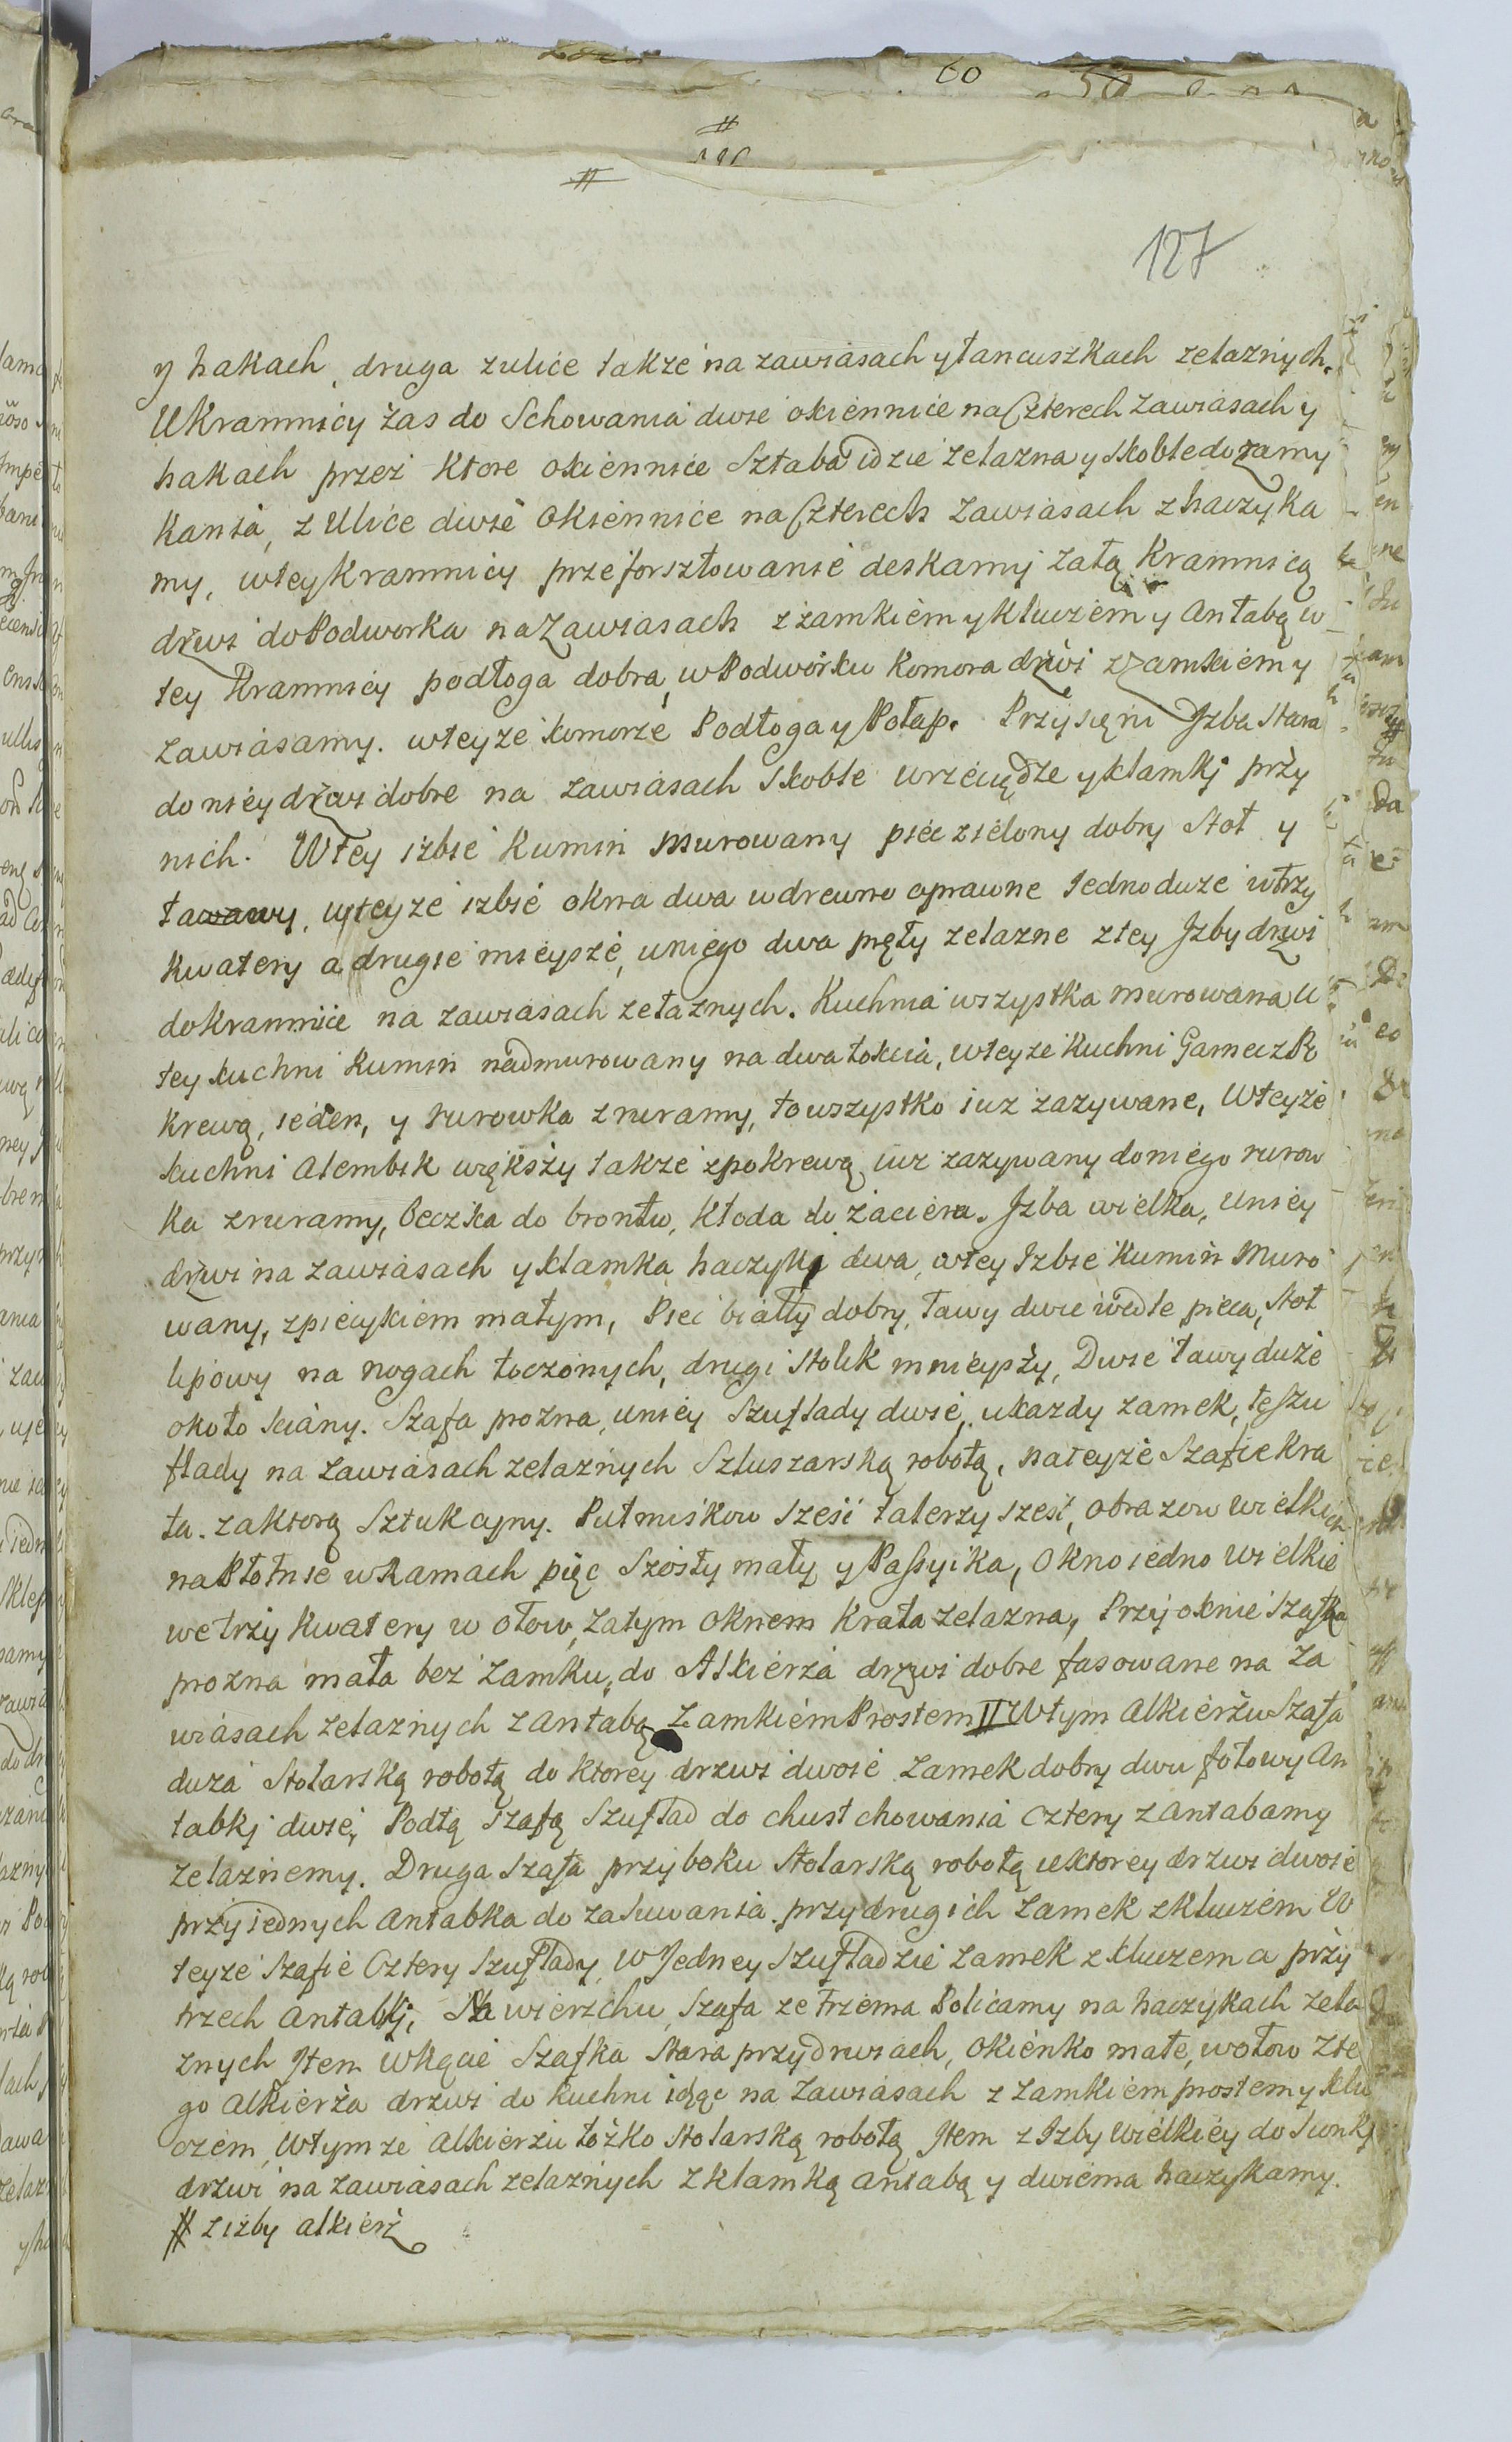 60
127
y hakach, druga zulice takze na zawiasach y łancuszkach zelaznych.
Ukramnicy zas do Schowania dwie okiennice na Czterech zawiasach y
hakach przez ktore okiennice Sztaba idzie zelazna y skoble do zamy
kania, z Ulice dwie okiennice na Czterech zawiasach z haczyka
my, wtey kramnicy przeforsztowanie deskamy zatą kramnicą
drzwi do Podworka na Zawiasach z zamkiem y kluczem y antabą w
tey kramnicy podłoga dobra, w Podworku komora drzwi z zamkiem y
zawiasamy. wteyze komorze Podłoga y Połap. Przysięni Jzba stara
do niey drzwi dobre na zawiasach skoble wrzeciądze y klamkj przy
nich. Wtey izbie kumin murowany piec zielony dobry stoł y
ławawy, wteyze izbie okna dwa wdrewno oprawne Jedno duze wtrzy
kwatery a drugie mieysze, uniego dwa pręty zelazne ztey Jzby drzwi
do kramnice na zawiasach zelaznych. Kuchnia wszystka murowana U
tey kuchni kumin nadmurowany na dwa łokcia, wteyze kuchni Garniec z Po
krewą, ieden, y rurowka z ruramy, to wszystko iuz zazywane, Wteyze
kuchni Alembik większy takze z pokrewą iuz zazywany do niego rurow
ka z ruramy, beczka do brontu, kłoda do zaciera. Jzba wielka, uniey
drzwi na zawiasach y klamka haczykj dwa, wtey Izbie kumin Muro
wany, z piecykiem małym, Piec biały dobry, ławy dwie wedle pieca, stoł
lipowy na nogach toczonych, drugi stolik mnieyszy, Dwie ławy duze
około sciany. Szafa prozna, uniey Szuflady dwie, ukazdy zamek, te Szu
flady na zawiasach zelaznych Szluszarską robotą, nateyze Szafie kra
ta. zaktorą Sztuk cyny. Putmiskow szesc talerzy szesc, obrazow wielkich
na Płotnie w Ramach pięc Szosty mały y Passyika, okno iedno wielkie
we trzy kwatery w ołow, zatym oknem krata zelazna, Przy oknie Szafka
prozna mała bez zamku, do Alkierza drzwi dobre fasowane na za
wiasach zelaznych z antabą Zamkiem Prostem # Wtym alkierzu Szafa
duza stolarską robotą do ktorey drzwi dwoie zamek dobry dwu fotowy an
tabkj dwie, Podtą szafą Szuflad do chust chowania cztery z antabamy
zelaznemy. Druga szafa przyboku stolarską robotą uktorey drzwi dwoie
przy iednych antabka do zasuwania. przy drugich zamek z kluczem W
teyze Szafie Cztery Szuflady, w Jedney Szufladzie zamek z kluczem a przy
trzech antabkj, Na wierzchu Szafa ze trzema Policamy na haczykach zela
znych Jtem wkącie Szafka stara przydrwiach, okienko małe, wołow zte
go alkierza drzwi do kuchni idąc na zawiasach z zamkiem prostem y klu
czem, wtymze alkierzu łożko stolarską robotą Jtem z Izby wielkiey do sionkj
drzwi na zawiasach zelaznych z klamką antabą y dwiema haczykamy.
# z izby alkierz